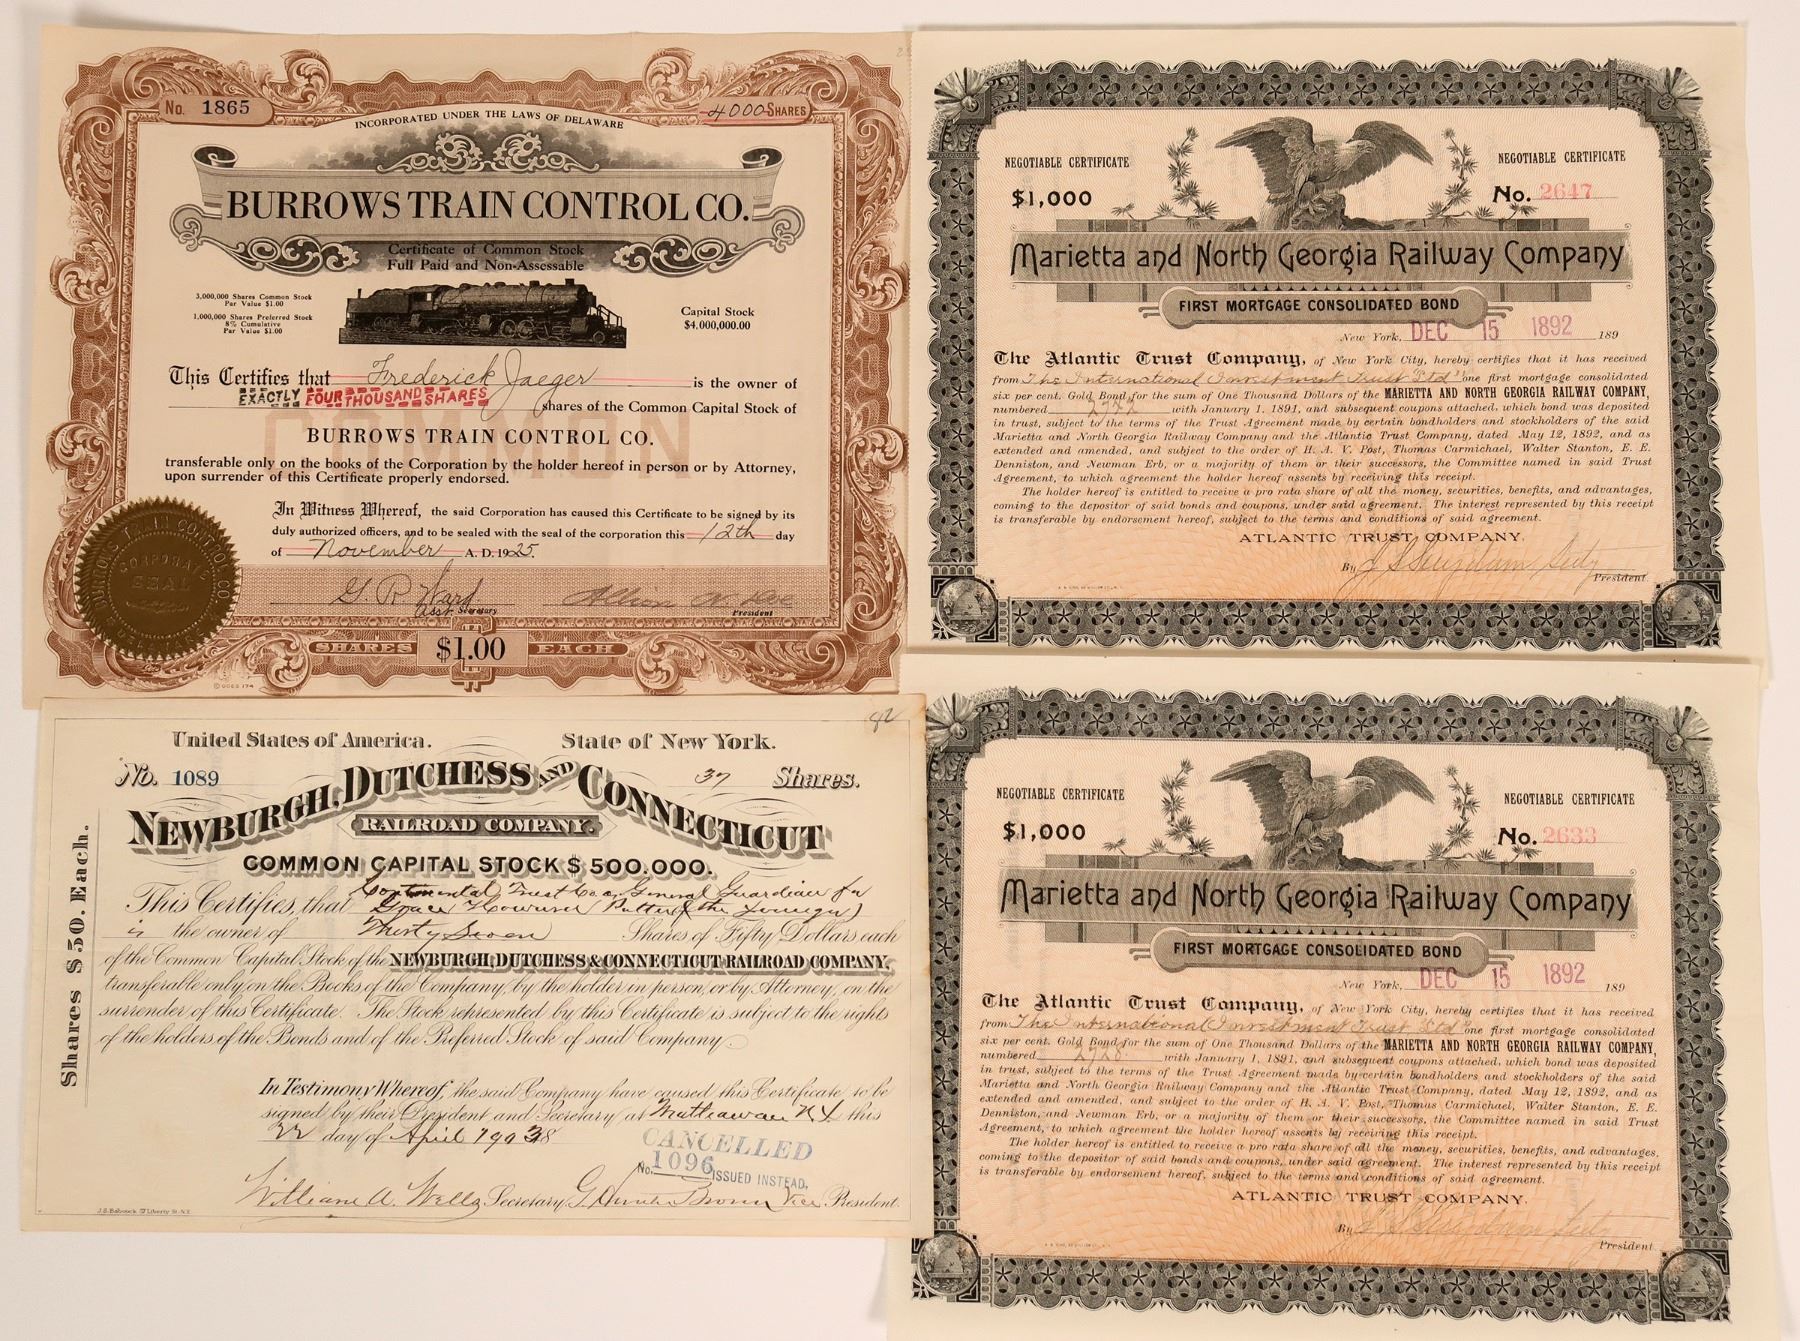 No. 1865
4000 SHARES
INCORPORATED UNDER THE LAWS OF DELAWARE
BURROWS TRAIN CONTROL CO.
Certificate of Common Stock
Full Paid and Non-Assessable
3,000,000 Shares Common Stock
Par Value $1.00
1,000,000 Shares Preferred Stock
8% Cumulative
Par Value $1.00
Capital Stock
$4,000,000.00
This Certifies that Frederick Jaeger is the owner of
EXACTLY FOUR THOUSAND SHARES shares of the Common Capital Stock of
COMMON
BURROWS TRAIN CONTROL CO.
transferable only on the books of the Corporation by the holder hereof in person or by Attorney,
upon surrender of this Certificate properly endorsed.
In Witness Whereof, the said Corporation has caused this Certificate to be signed by its
duly authorized officers, and to be sealed with the seal of the corporation this 12th day
of November A.D. 1925.
BURROWS TRAIN CONTROL CO.
CORPORATE
SEAL
G. R. Ward
Asst. Secretary
President
SHARES $1.00 EACH
© GOES 174
NEGOTIABLE CERTIFICATE
NEGOTIABLE CERTIFICATE
$1,000
No. 2647
Marietta and North Georgia Railway Company
FIRST MORTGAGE CONSOLIDATED BOND
New York, DEC 15 1892 189
The Atlantic Trust Company, of New York City, hereby certifies that it has received
from The International Investment Trust "Ltd" one first mortgage consolidated
six per cent. Gold Bond for the sum of One Thousand Dollars of the MARIETTA AND NORTH GEORGIA RAILWAY COMPANY,
numbered 2742 with January 1, 1891, and subsequent coupons attached, which bond was deposited
in trust, subject to the terms of the Trust Agreement made by certain bondholders and stockholders of the said
Marietta and North Georgia Railway Company and the Atlantic Trust Company, dated May 12, 1892, and as
extended and amended, and subject to the order of H. A. V. Post, Thomas Carmichael, Walter Stanton, E. E.
Denniston, and Newman Erb, or a majority of them or their successors, the Committee named in said Trust
Agreement, to which agreement the holder hereof assents by receiving this receipt.
The holder hereof is entitled to receive a pro rata share of all the money, securities, benefits, and advantages,
coming to the depositor of said bonds and coupons, under said agreement. The interest represented by this receipt
is transferable by endorsement hereof, subject to the terms and conditions of said agreement.
ATLANTIC TRUST COMPANY.
By J S Suydam Secty
President.
82
United States of America.
State of New York.
No. 1089
37 Shares.
NEWBURGH, DUTCHESS AND CONNECTICUT
RAILROAD COMPANY.
COMMON CAPITAL STOCK $500.000.
Shares $50. Each.
This Certifies, that Continental Trust Co. as General Guardian for
Grace Howard Potter (the younger)
is the owner of Thirty Seven Shares of Fifty Dollars each
of the Common Capital Stock of the NEWBURGH, DUTCHESS & CONNECTICUT RAILROAD COMPANY,
transferable only on the Books of the Company by the holder in person, or by Attorney, on the
surrender of this Certificate. The Stock represented by this Certificate is subject to the rights
of the holders of the Bonds and of the Preferred Stock of said Company.
In Testimony Whereof, the said Company have caused this Certificate to be
signed by their President and Secretary at Matteawan N.Y. this
22 day of April 1903
CANCELLED
No. 1096 ISSUED INSTEAD.
William A. Wells Secretary. G. Hunter Brown Vice President.
J.S. Babcock 67 Liberty St. N.Y.
NEGOTIABLE CERTIFICATE
NEGOTIABLE CERTIFICATE
$1,000
No. 2633
Marietta and North Georgia Railway Company
FIRST MORTGAGE CONSOLIDATED BOND
New York, DEC 15 1892 189
The Atlantic Trust Company, of New York City, hereby certifies that it has received
from The International Investment Trust "Ltd" one first mortgage consolidated
six per cent. Gold Bond for the sum of One Thousand Dollars of the MARIETTA AND NORTH GEORGIA RAILWAY COMPANY,
numbered 2728 with January 1, 1891, and subsequent coupons attached, which bond was deposited
in trust, subject to the terms of the Trust Agreement made by certain bondholders and stockholders of the said
Marietta and North Georgia Railway Company and the Atlantic Trust Company, dated May 12, 1892, and as
extended and amended, and subject to the order of H. A. V. Post, Thomas Carmichael, Walter Stanton, E. E.
Denniston, and Newman Erb, or a majority of them or their successors, the Committee named in said Trust
Agreement, to which agreement the holder hereof assents by receiving this receipt.
The holder hereof is entitled to receive a pro rata share of all the money, securities, benefits, and advantages,
coming to the depositor of said bonds and coupons, under said agreement. The interest represented by this receipt
is transferable by endorsement hereof, subject to the terms and conditions of said agreement.
ATLANTIC TRUST COMPANY.
By J S Suydam Secty
President.